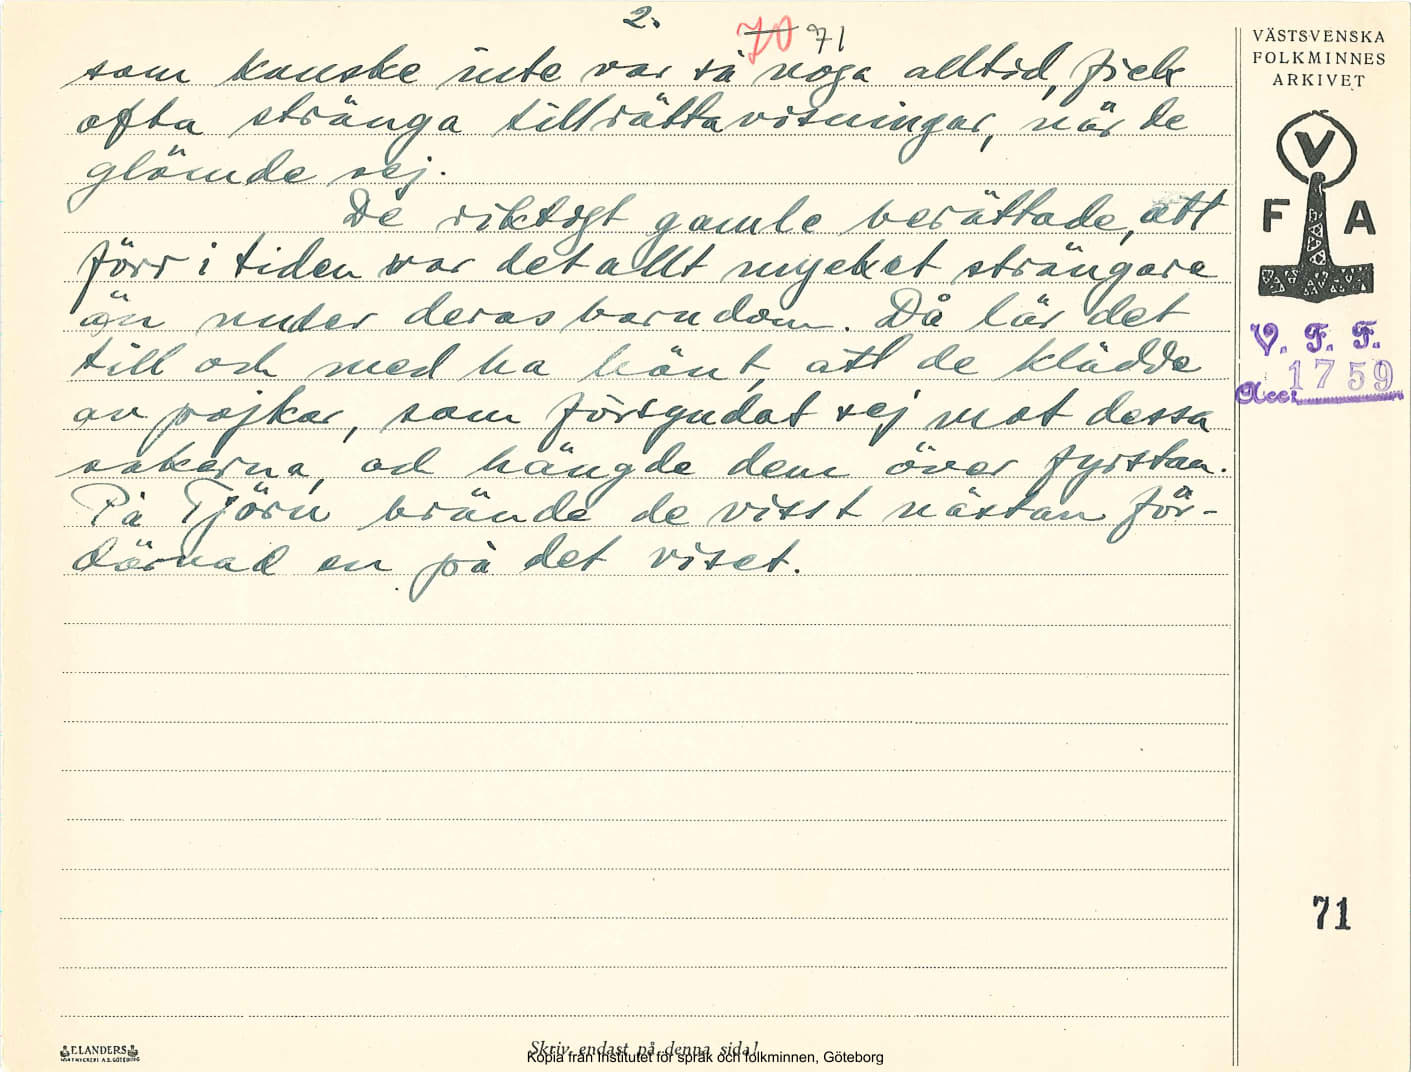 2.
70 71
som kanske inte var så noga alltid, fick
ofta stränga tillrättavisningar, när de
glömde sej.
De riktigt gamle berättade, att
förr i tiden var det allt mycket strängare
än under deras barndom. Då lär det
till och med ha hänt, att de klädde
av pojkar, som försyndat sej mot dessa
sakerna, och hängde dem över fyrstan.
På Tjörn brände de visst nästan för-
därvad en på det viset.
VÄSTSVENSKA
FOLKMINNES
ARKIVET
V
F A
V. F. F.
Acc: 1759
71
ELANDERS
Skriv endast på denna sida!
Kopia från Institutet för språk och folkminnen, Göteborg